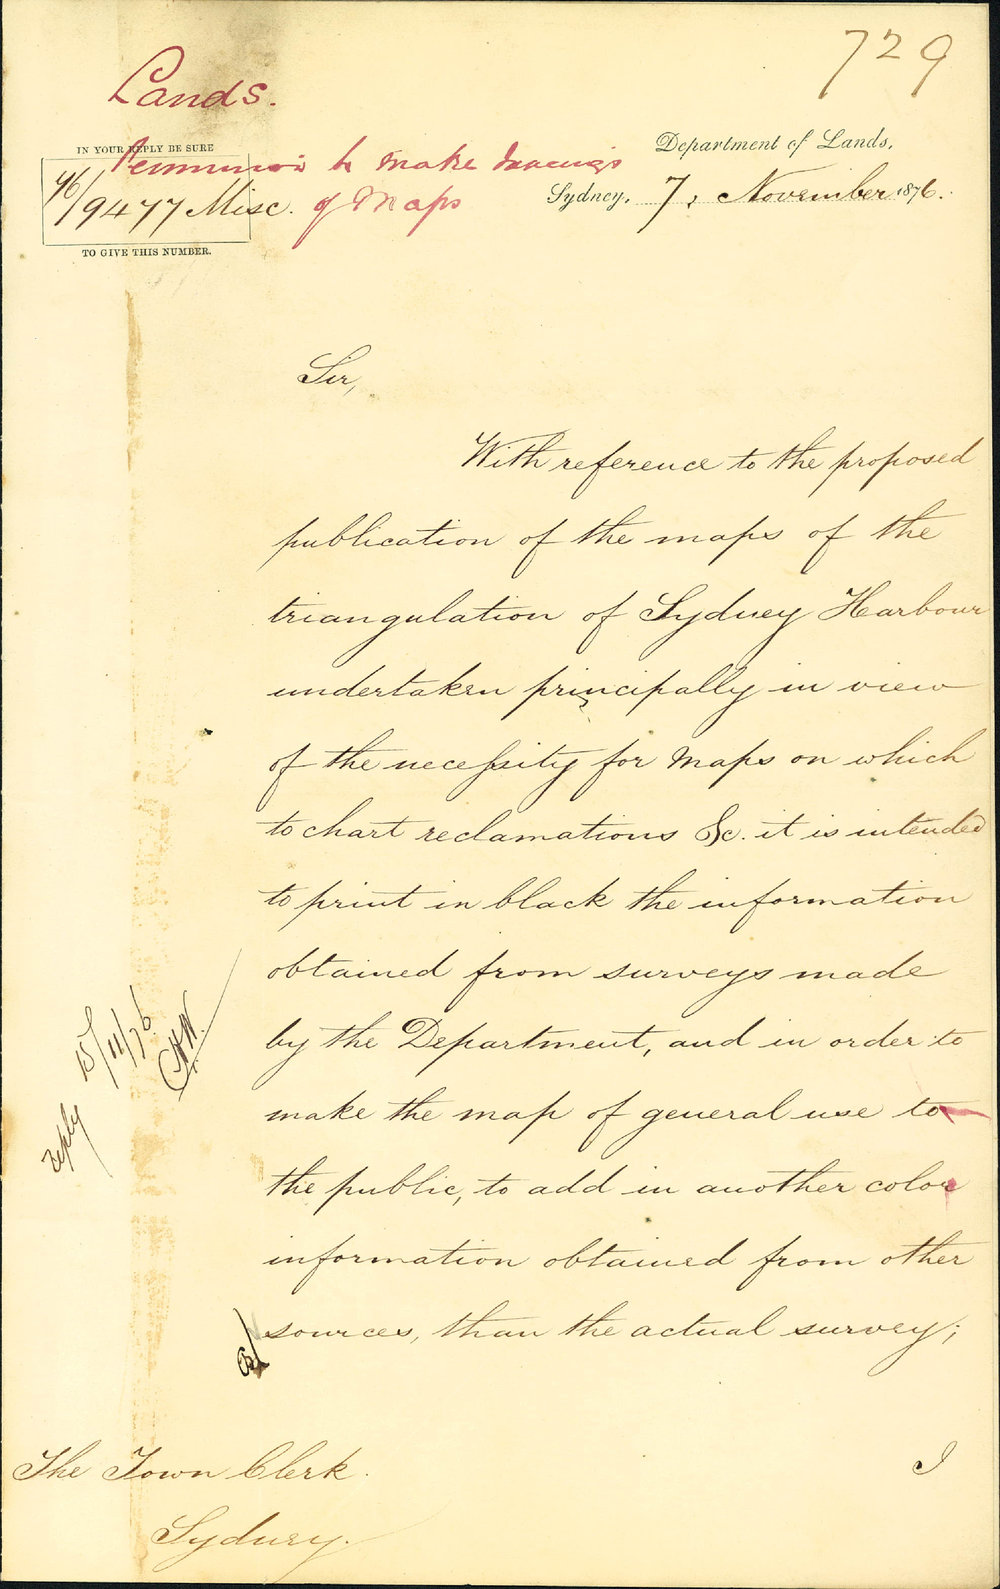 729
Lands.
Permission to make tracings
of Maps
IN YOUR REPLY BE SURE
76/9477 Misc.
TO GIVE THIS NUMBER.
Department of Lands,
Sydney, 7, November 1876.
Sir,
With reference to the proposed
publication of the maps of the
triangulation of Sydney Harbour
undertaken principally in view
of the necessity for maps on which
to chart reclamations &c. it is intended
to print in black the information
obtained from surveys made
by the Department, and in order to
make the map of general use to
the public, to add in another color
information obtained from other
sources, than the actual survey;
reply 15/11/76
The Town Clerk.
Sydney.
I